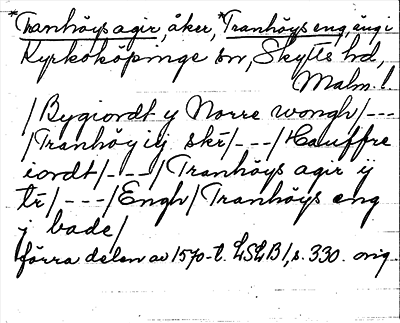 *Tranhöys agir, åker, *Tranhöys eng, äng i
Kyrkoköpinge sn, Skytts hd,
Malm. l.
/Bygiordt y Norre wongh/---
/Tranhöy iij skr/---/Hauffre
iordt/---/Tranhöys agir ij
tr/---/Engh/Tranhöys eng
j bade/
förra delen av 1570-t. LSLB 1, s. 330. orig.